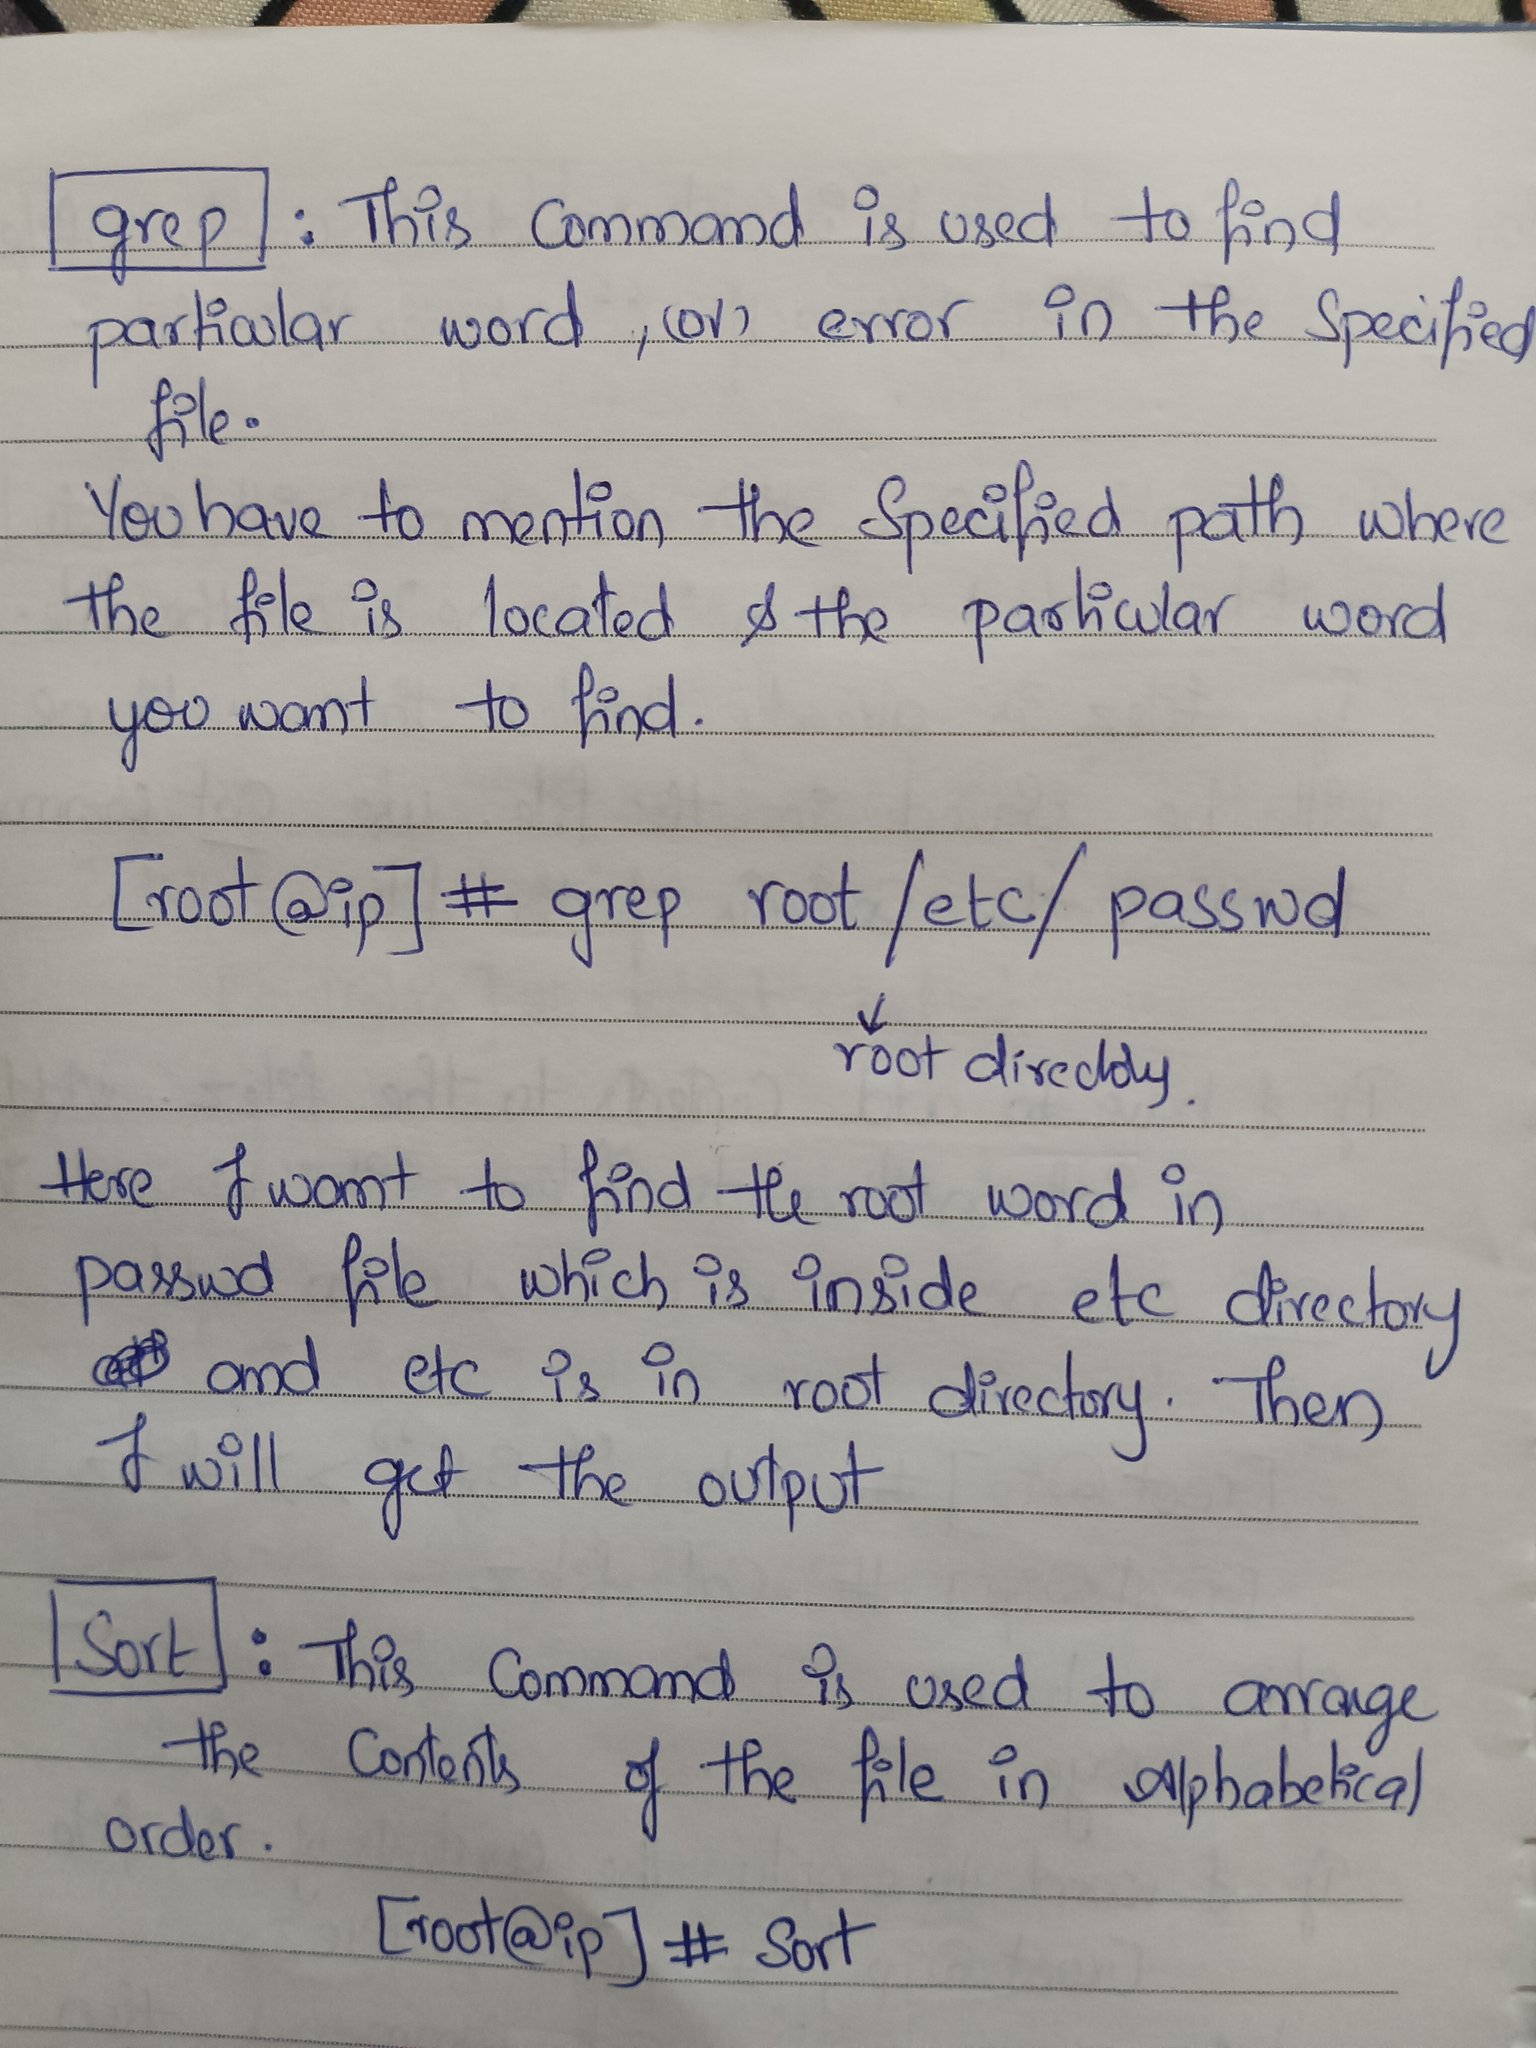 grep : This Command is used to find
particular word, (or) error in the Specified
file.
You have to mention the Specified path where
the file is located & the particular word
you want to find.
[root@ip] # grep root /etc/ passwd
↓
root directory.
Here I want to find the root word in
passwd file which is inside etc directory
and etc is in root directory. Then
I will get the output
Sort : This Command is used to arrange
the Contents of the file in Alphabetical
order.
[root@ip] # Sort